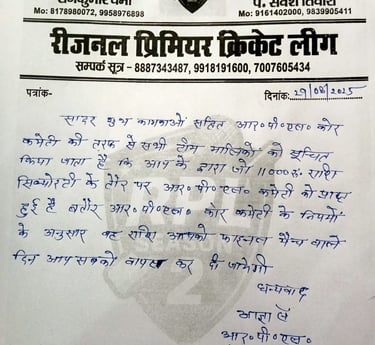 राजकुमार वर्मा पं. सर्वेश तिवारी
Mo: 8178980072, 9958976898 Mo: 9161402000, 9839905411
रीजनल प्रिमियर क्रिकेट लीग
सम्पर्क सूत्र - 8887343487, 9918191600, 7007605434
पत्रांक- दिनांक: 29/08/2025
सादर शुभ कामनाओं सहित आर०पी०एल० कोर
कमेटी की तरफ से सभी टीम मालिकों को सूचित
किया जाता है कि आप के द्वारा जो 11000रु. राशि
सिक्योरिटी के तौर पर आर०पी०एल० कमेटी को प्राप्त
हुई है बतौर आर०पी०एल० कोर कमेटी के नियमों
के अनुसार वह राशि आपको फाइनल मैच वाले
दिन आप सबको वापस कर दी जायेगी
धन्यवाद
आज्ञा से
आर०पी०एल०
RPL
SEASON
2